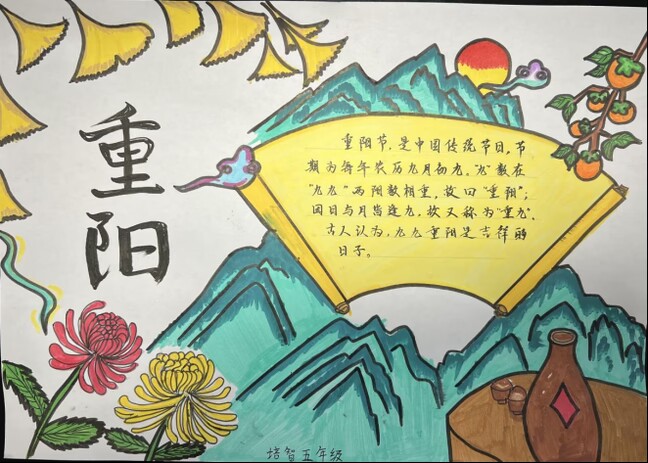 重阳
重阳节，是中国传统节日，节
期为每年农历九月初九。"九"数在
"九九"两阳数相重，故曰"重阳"；
因日与月皆逢九，故又称为"重九"。
古人认为，九九重阳是吉祥的
日子。
培智五年级